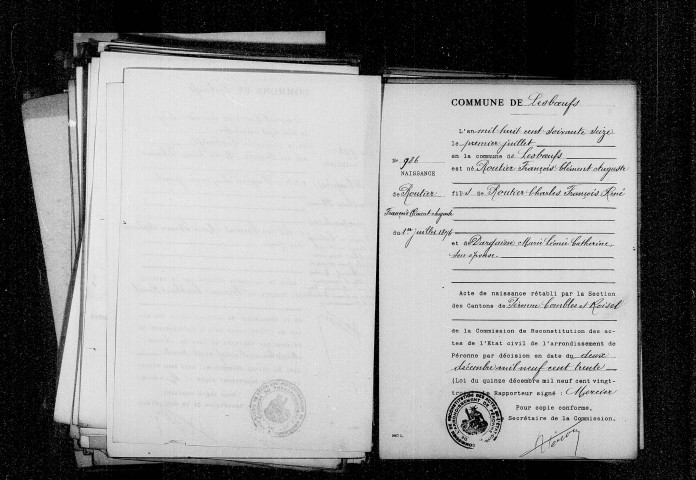 COMMUNE DE Lesbœufs
L'an mil huit cent soixante seize
le premier juillet
en la commune de Lesbœufs
est né Routier François Clément Auguste
fils de Routier Charles François Réné
et de Marie Catherine
son épouse
Acte de naissance rétabli par la Section
des Cantons de Péronne Combles et Roisel
de la Commission de Reconstitution des ac-
tes de l'Etat civil de l'arrondissement de
Péronne par décision en date du deux
décembre mil neuf cent trente
(Loi du quinze décembre mil neuf cent vingt-
Rapporteur signé : Mercier
Pour copie conforme,
Secrétaire de la Commission.
N° 986
NAISSANCE
de Routier
François Clément Auguste
du 1er juillet 1876